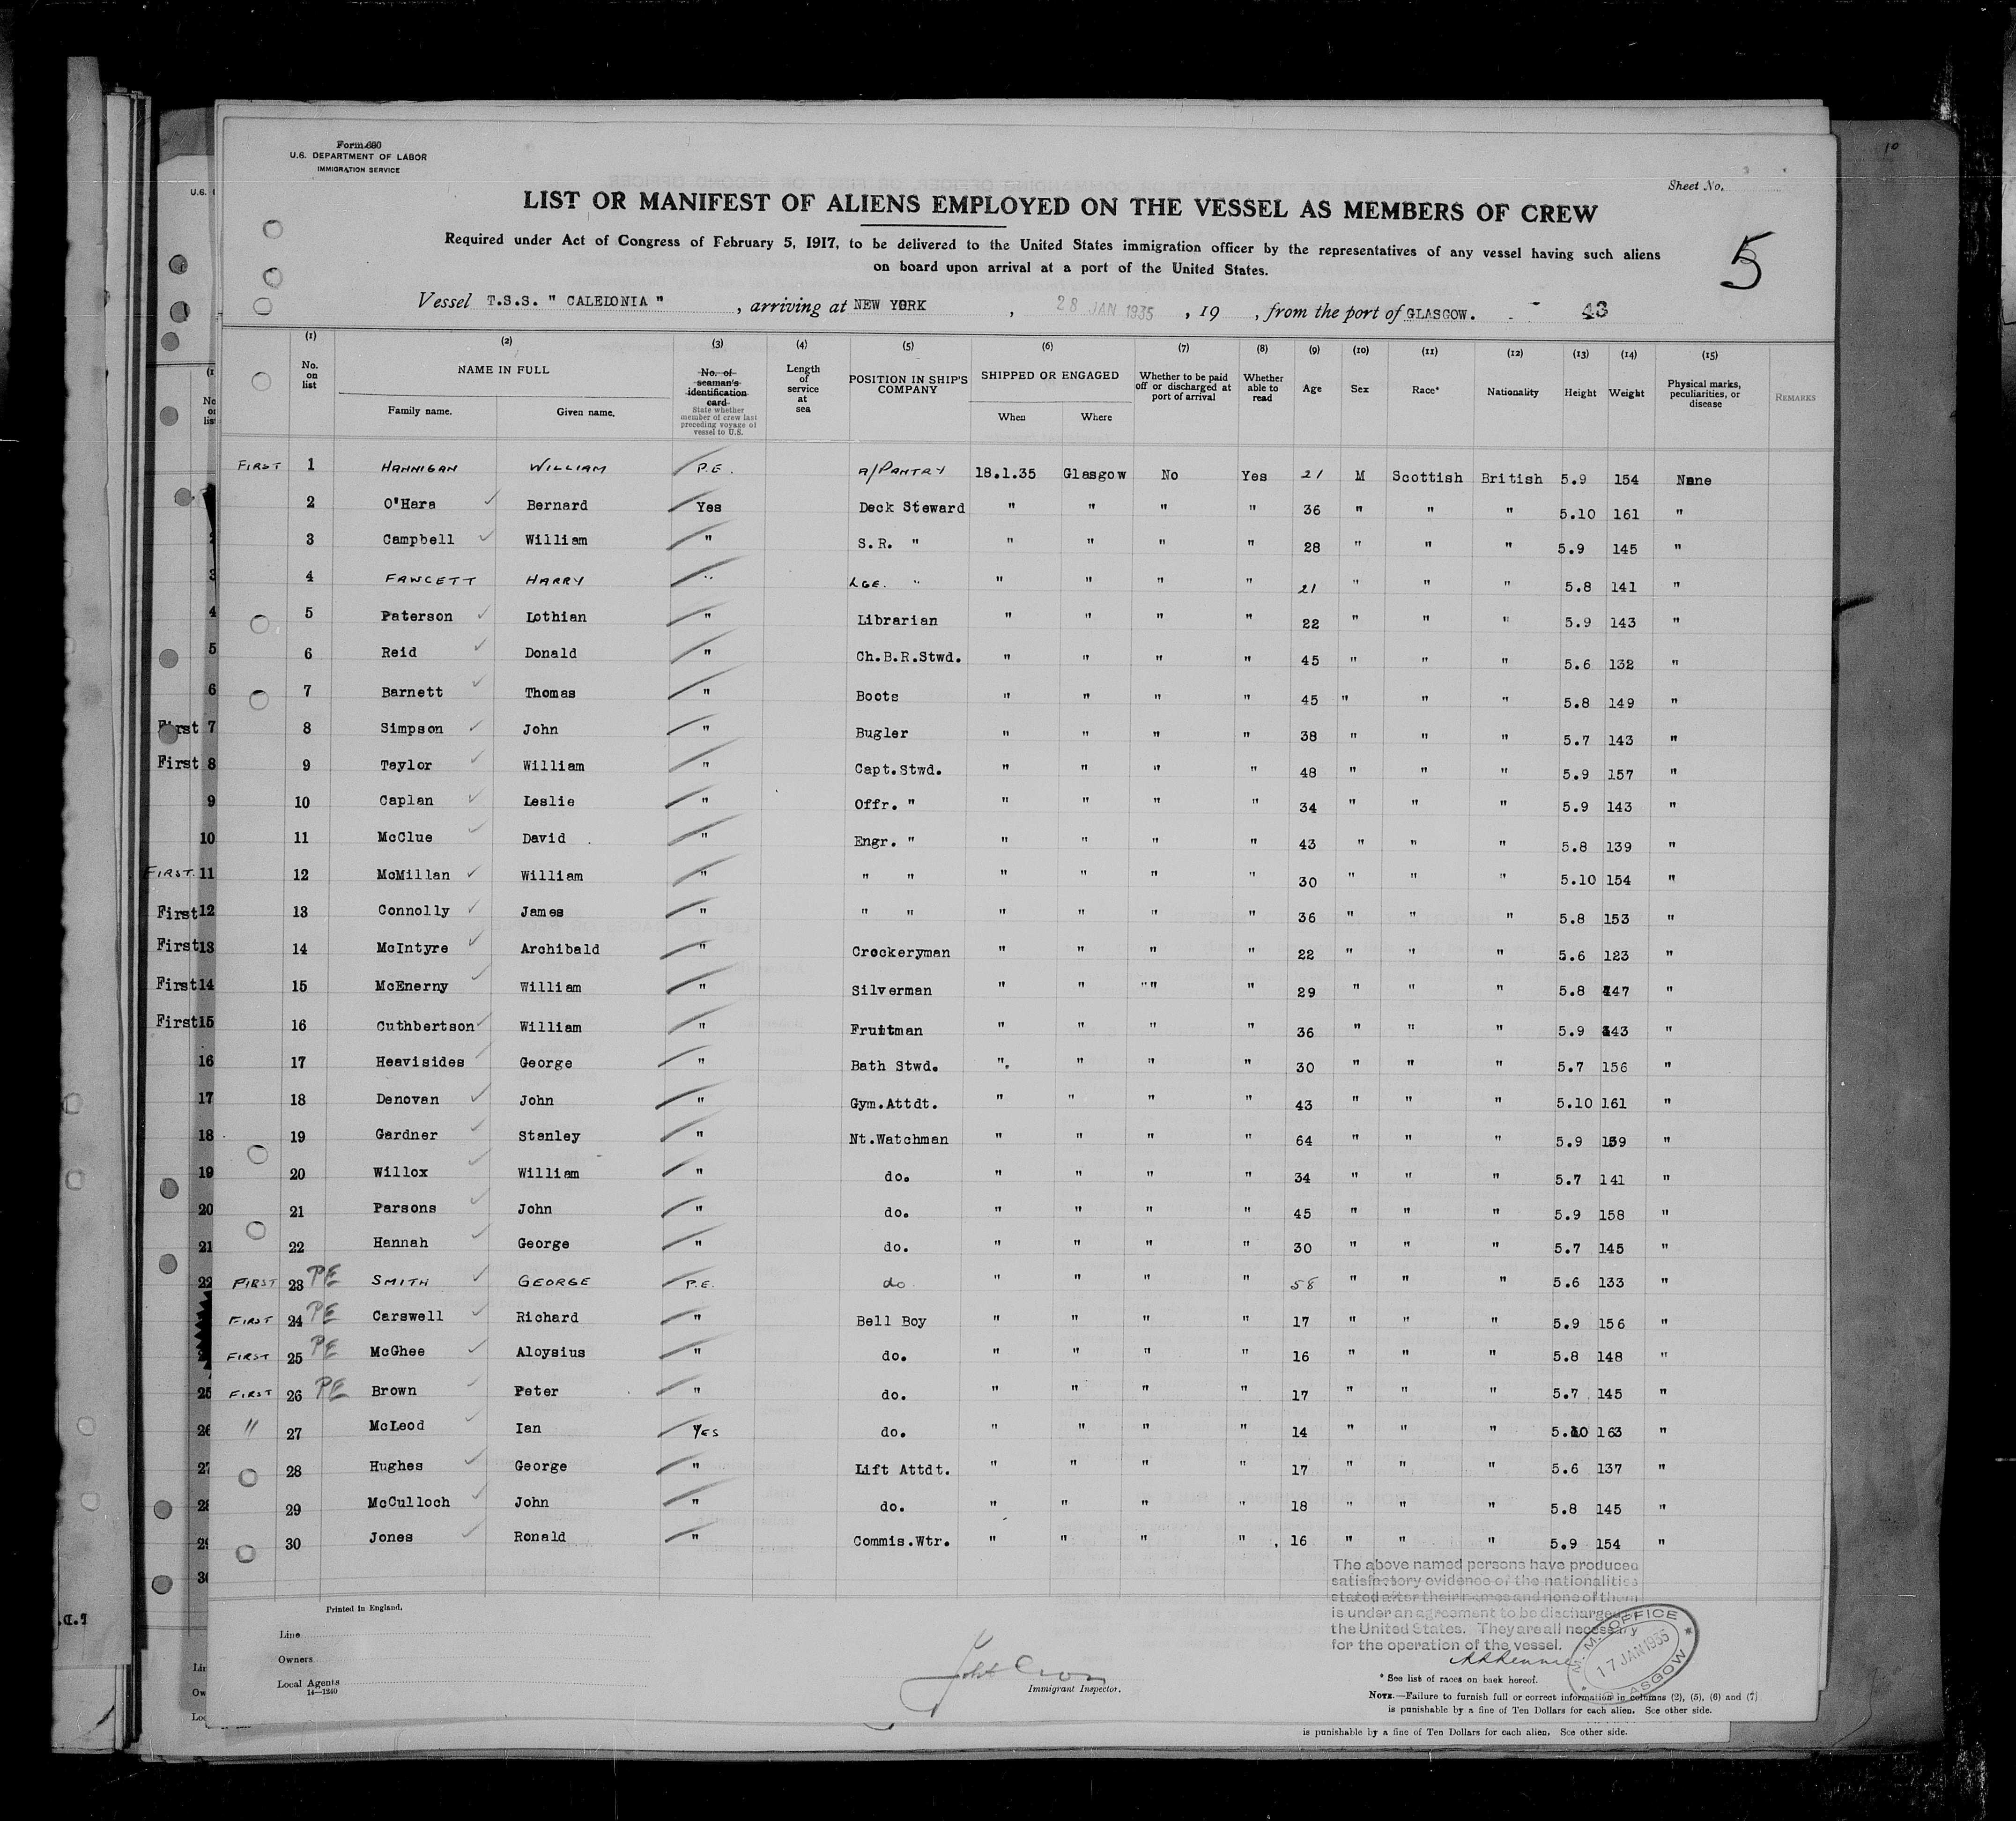 Form 680
U.S. DEPARTMENT OF LABOR
IMMIGRATION SERVICE
Sheet No.
LIST OR MANIFEST OF ALIENS EMPLOYED ON THE VESSEL AS MEMBERS OF CREW
Required under Act of Congress of February 5, 1917, to be delivered to the United States immigration officer by the representatives of any vessel having such aliens
on board upon arrival at a port of the United States.
5
Vessel T.S.S. " CALEDONIA " , arriving at NEW YORK , 28 JAN 1935 , 19 , from the port of GLASGOW. 43
(1) (2) (3) (4) (5) (6) (7) (8) (9) (10) (11) (12) (13) (14) (15)
No. on list NAME IN FULL Family name. Given name. No. of seaman's identification card State whether member of crew last preceding voyage of vessel to U.S. Length of service at sea POSITION IN SHIP'S COMPANY SHIPPED OR ENGAGED When Where Whether to be paid off or discharged at port of arrival Whether able to read Age Sex Race* Nationality Height Weight Physical marks, peculiarities, or disease REMARKS
FIRST 1 HANNIGAN WILLIAM P.E. A/PANTRY 18.1.35 Glasgow No Yes 21 M Scottish British 5.9 154 None
2 O'Hara Bernard Yes Deck Steward " " " " 36 " " " 5.10 161 "
3 Campbell William " S.R. " " " " " 28 " " " 5.9 145 "
4 FAWCETT HARRY " LGE. " " " " " 21 " " " 5.8 141 "
5 Paterson Lothian " Librarian " " " " 22 " " " 5.9 143 "
6 Reid Donald " Ch.B.R.Stwd. " " " " 45 " " " 5.6 132 "
7 Barnett Thomas " Boots " " " " 45 " " " 5.8 149 "
8 Simpson John " Bugler " " " " 38 " " " 5.7 143 "
9 Taylor William " Capt.Stwd. " " " " 48 " " " 5.9 157 "
10 Caplan Leslie " Offr. " " " " " 34 " " " 5.9 143 "
11 McClue David " Engr. " " " " " 43 " " " 5.8 139 "
12 McMillan William " " " " " " " 30 " " " 5.10 154 "
13 Connolly James " " " " " " " 36 " " " 5.8 153 "
14 McIntyre Archibald " Crockeryman " " " " 22 " " " 5.6 123 "
15 McEnerny William " Silverman " " " " " 29 " " " 5.8 147 "
16 Cuthbertson William " Fruitman " " " " 36 " " " 5.9 143 "
17 Heavisides George " Bath Stwd. " " " " 30 " " " 5.7 156 "
18 Denovan John " Gym.Attdt. " " " " 43 " " " 5.10 161 "
19 Gardner Stanley " Nt.Watchman " " " " 64 " " " 5.9 159 "
20 Willox William " do. " " " " 34 " " " 5.7 141 "
21 Parsons John " do. " " " " 45 " " " 5.9 158 "
22 Hannah George " do. " " " " 30 " " " 5.7 145 "
FIRST 23 PE SMITH GEORGE P.E. do " " " " 58 " " " 5.6 133 "
FIRST 24 PE Carswell Richard " Bell Boy " " " " 17 " " " 5.9 156 "
FIRST 25 PE McGhee Aloysius " do. " " " " 16 " " " 5.8 148 "
FIRST 26 PE Brown Peter " do. " " " " 17 " " " 5.7 145 "
" 27 McLeod Ian YES do. " " " " 14 " " " 5.10 163 "
28 Hughes George " Lift Attdt. " " " " 17 " " " 5.6 137 "
29 McCulloch John " do. " " " " 18 " " " 5.8 145 "
30 Jones Ronald " Commis.Wtr. " " " " 16 " " " 5.9 154 "
The above named persons have produced
satisfactory evidence of the nationalities
stated after their names and none of them
is under an agreement to be discharged
the United States. They are all necessary
for the operation of the vessel.
M.M. OFFICE
17 JAN 1935
GLASGOW
Printed in England.
Line
Owners
Local Agents
14—1240
Immigrant Inspector.
* See list of races on back hereof.
NOTE.—Failure to furnish full or correct information in columns (2), (5), (6) and (7)
is punishable by a fine of Ten Dollars for each alien. See other side.
is punishable by a fine of Ten Dollars for each alien. See other side.